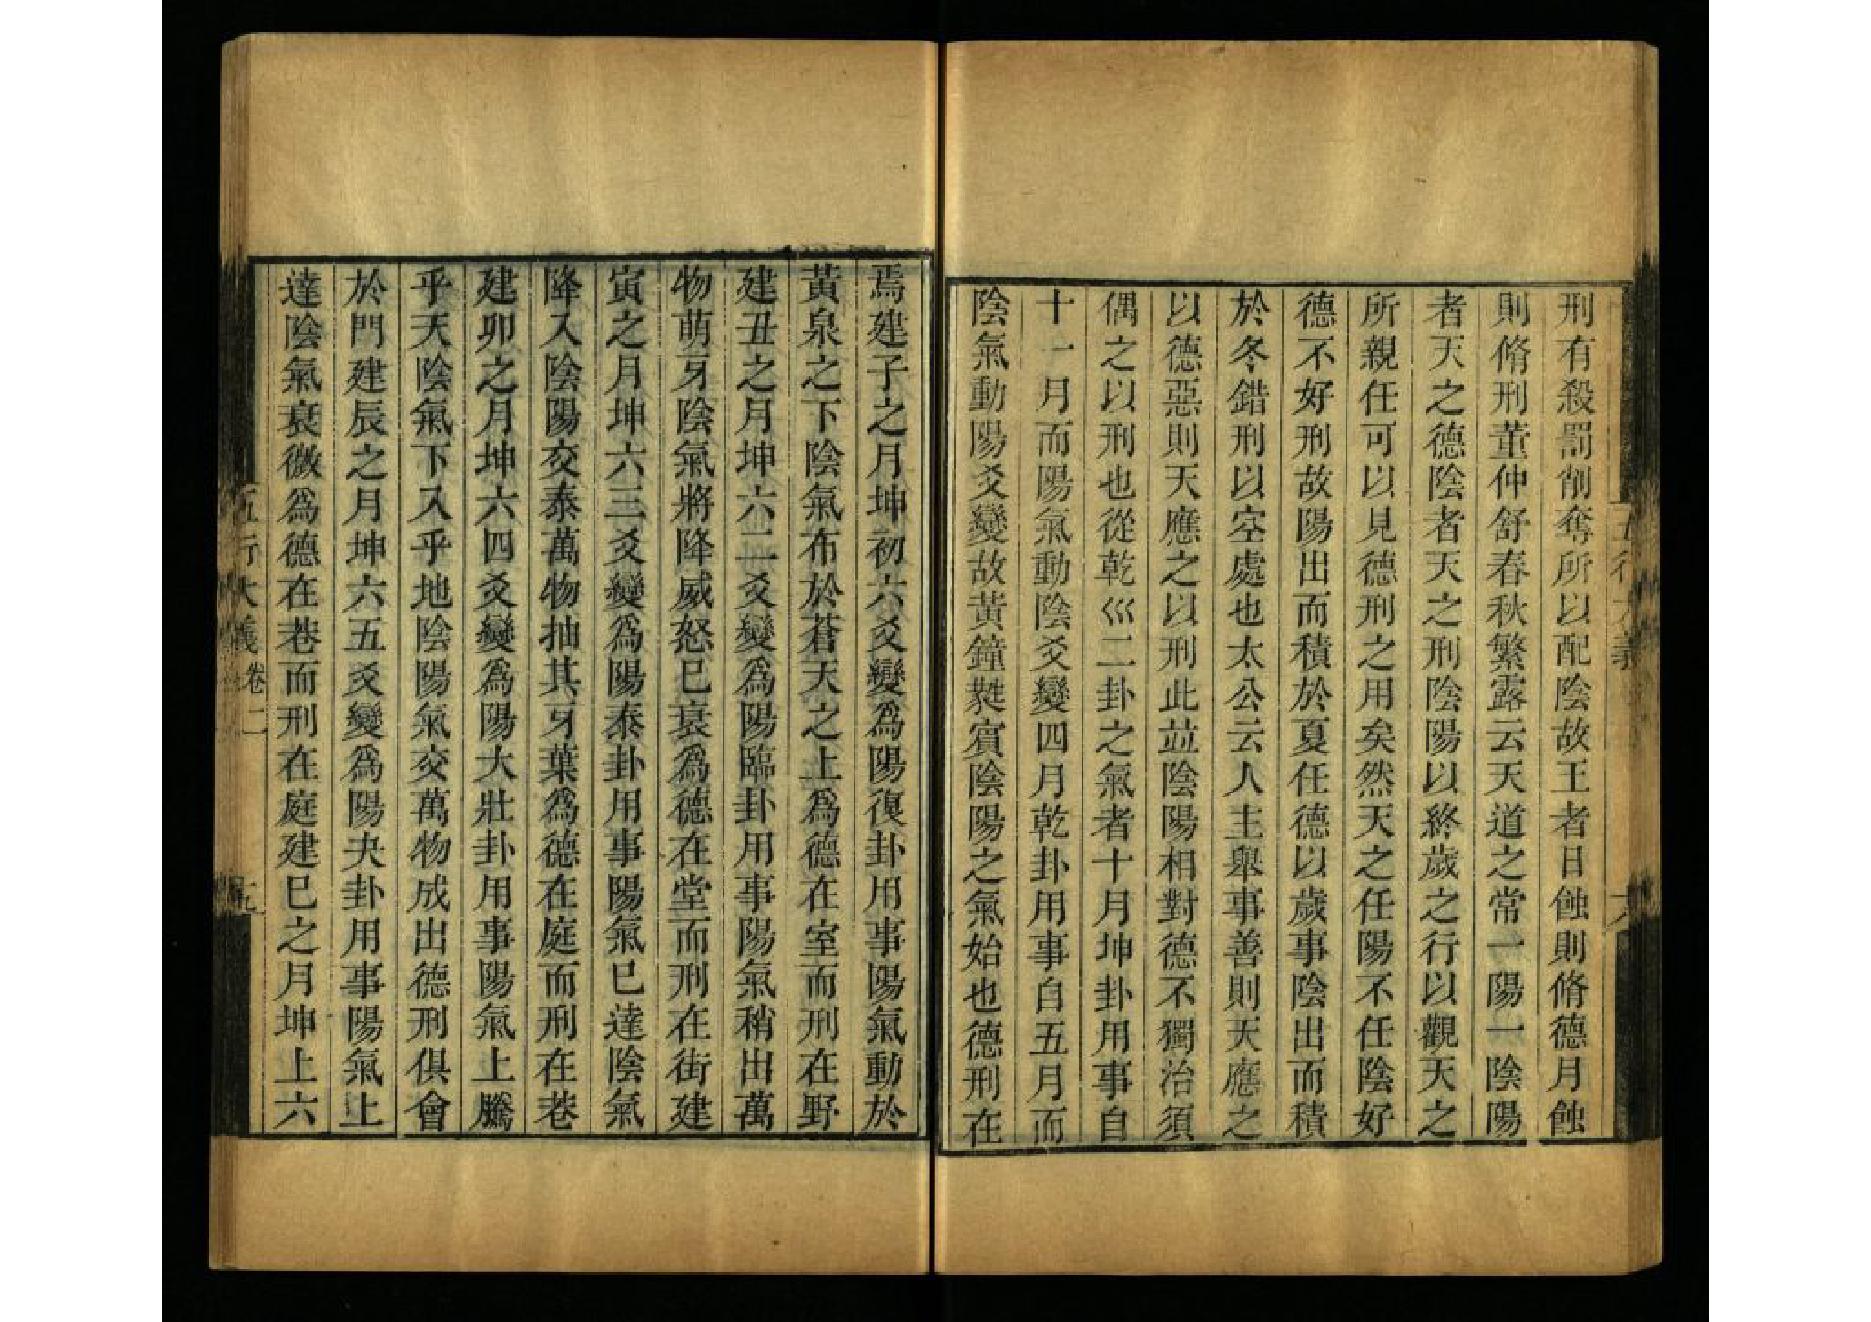 刑有殺罰削奪所以配陰故王者日蝕則脩德月蝕
則脩刑董仲舒春秋繁露云天道之常一陽一陰陽
者天之德陰者天之刑陰陽以終歲之行以觀天之
所親任可以見德刑之用矣然天之任陽不任陰好
德不好刑故陽出而積於夏任德以歲事陰出而積
於冬錯刑以空處也太公云人主舉事善則天應之
以德惡則天應之以刑此竝陰陽相對德不獨治須
偶之以刑也從乾巛二卦之氣者十月坤卦用事自
十一月而陽氣動陰爻變四月乾卦用事自五月而
陰氣動陽爻變故黃鐘蕤賓陰陽之氣始也德刑在
焉建子之月坤初六爻變爲陽復卦用事陽氣動於
黃泉之下陰氣布於蒼天之上爲德在室而刑在野
建丑之月坤六二爻變爲陽臨卦用事陽氣稍出萬
物萌牙陰氣將降威怒已衰爲德在堂而刑在街建
寅之月坤六三爻變爲陽泰卦用事陽氣已達陰氣
降入陰陽交泰萬物抽其牙葉爲德在庭而刑在巷
建卯之月坤六四爻變爲陽大壯卦用事陽氣上騰
乎天陰氣下入乎地陰陽氣交萬物成出德刑俱會
於門建辰之月坤六五爻變爲陽夬卦用事陽氣上
達陰氣衰微爲德在巷而刑在庭建巳之月坤上六
五行大義卷二